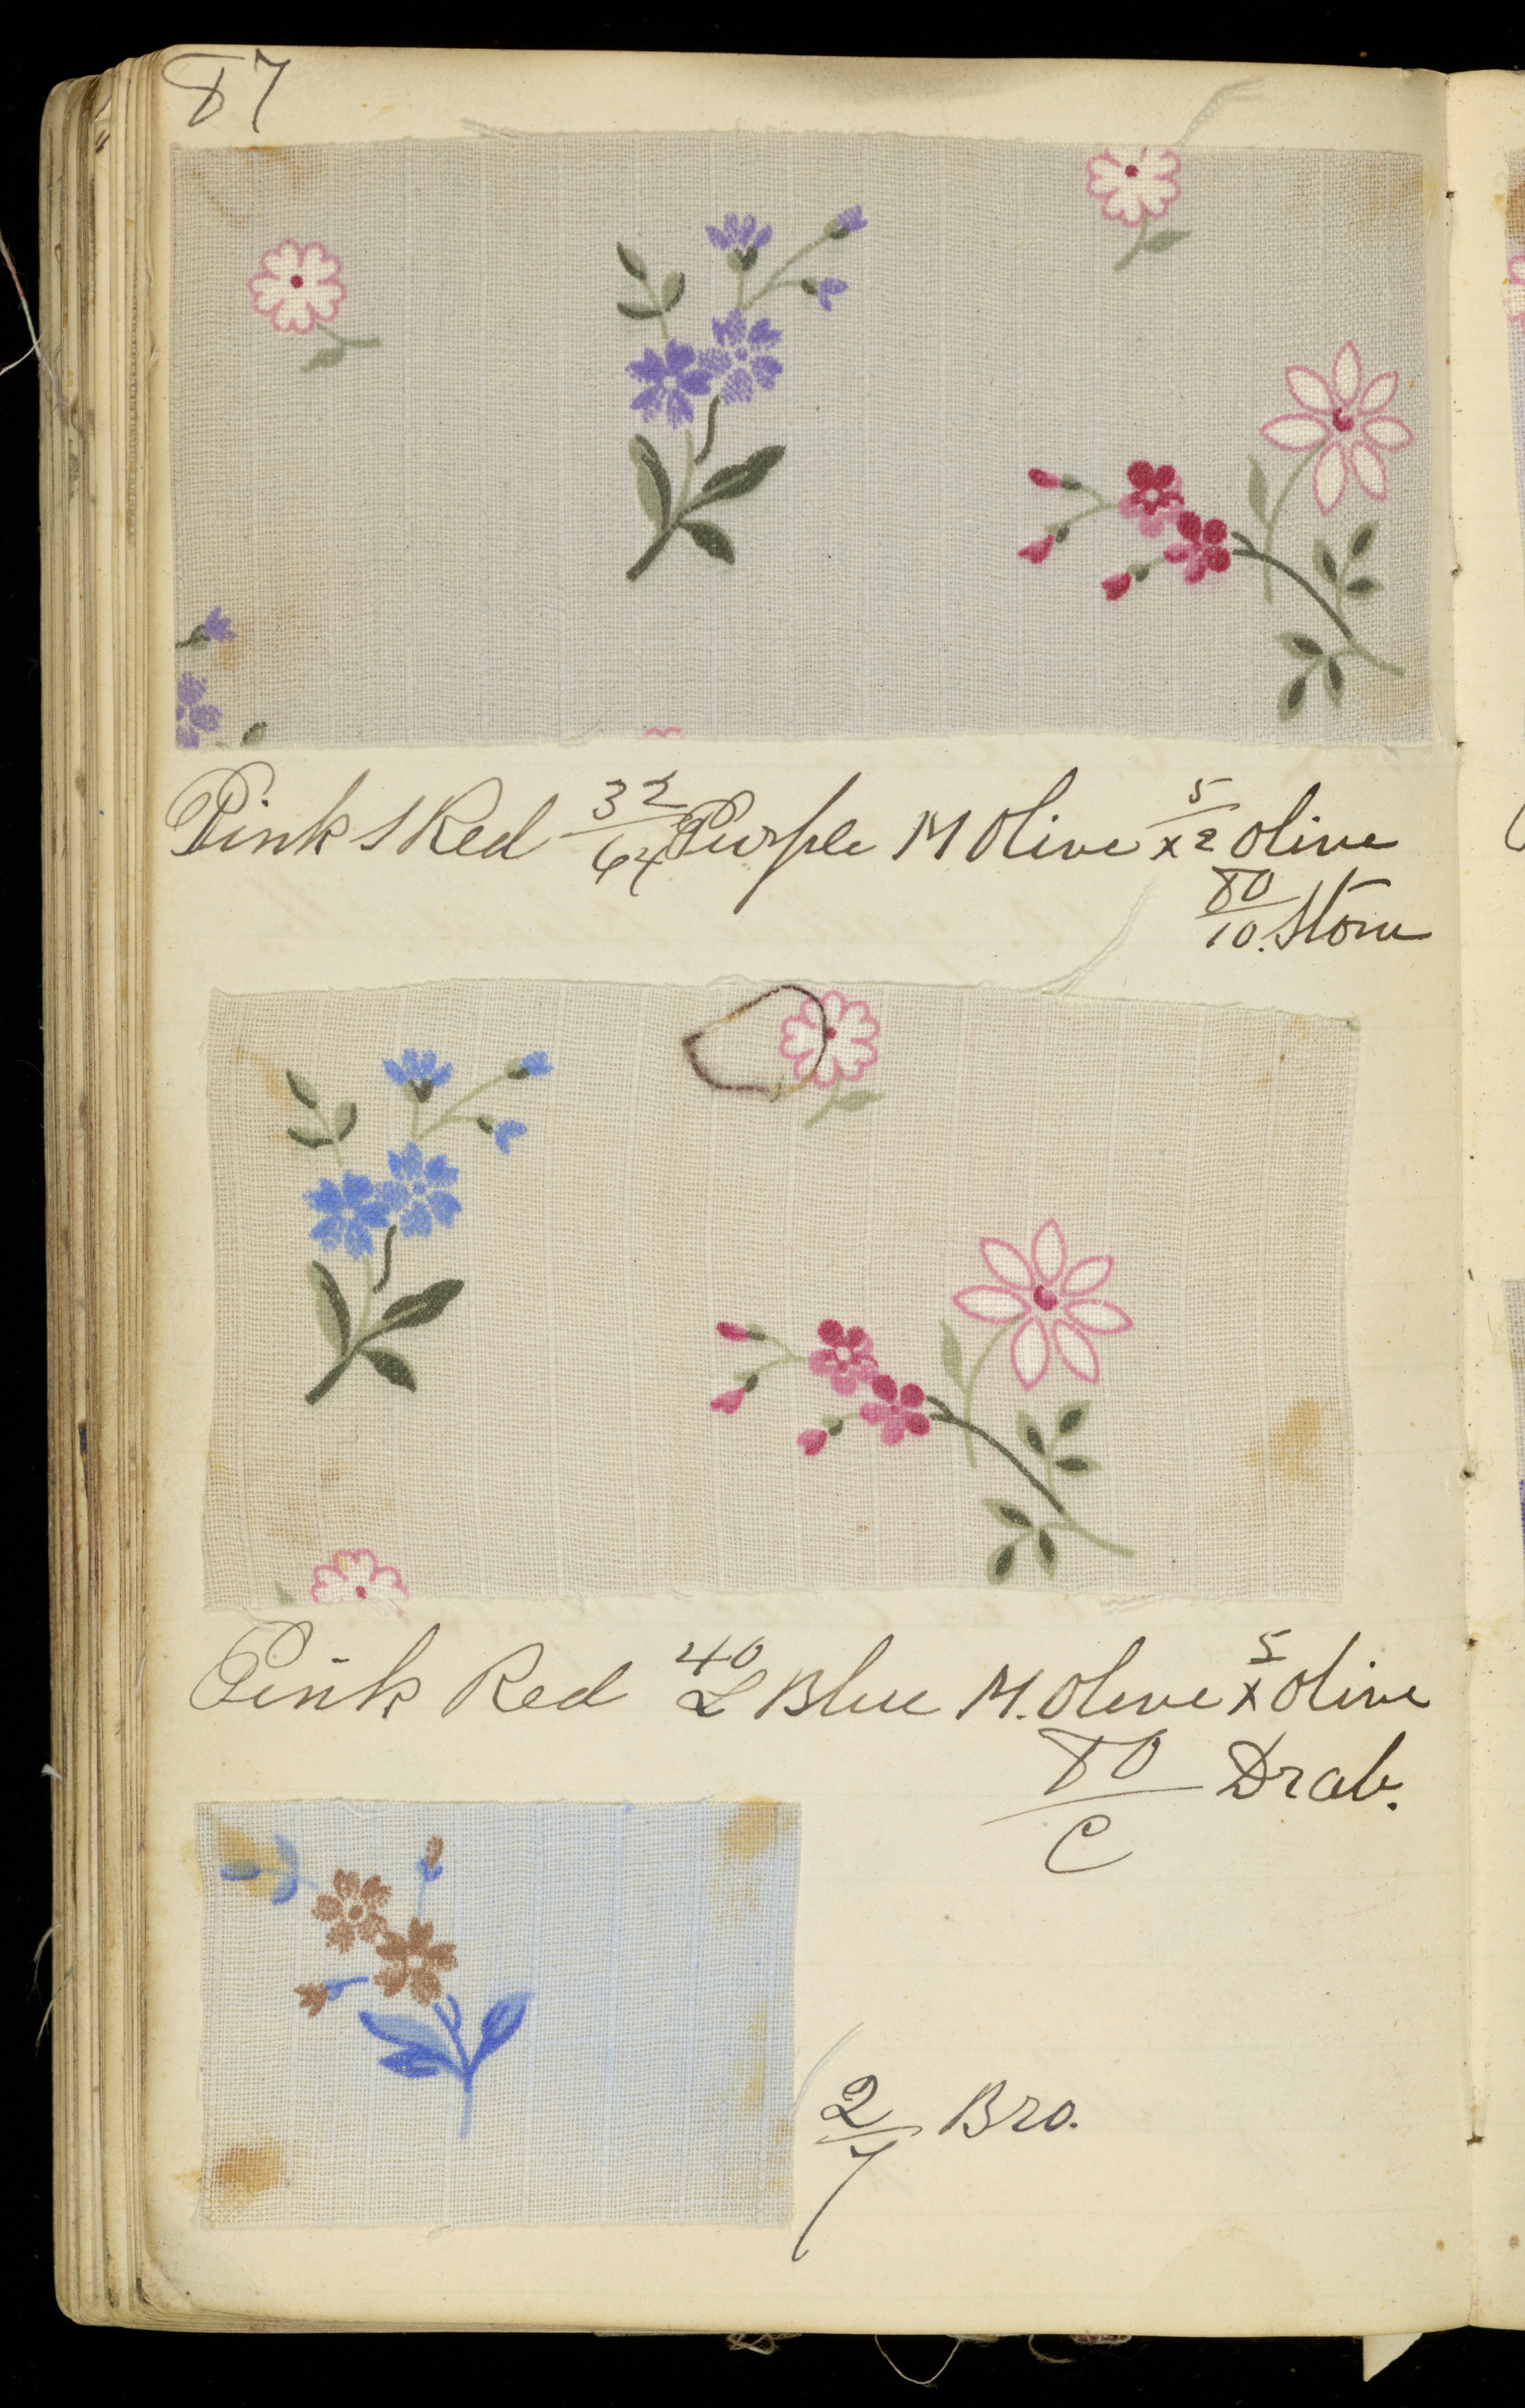 87
Pink S Red 32/64 Purple M Olive 5/x2 Olive
80/10. Stone
Pink Red 40/L Blue M. Olive 5/x Olive
80/C Drab.
2/7 Bro.